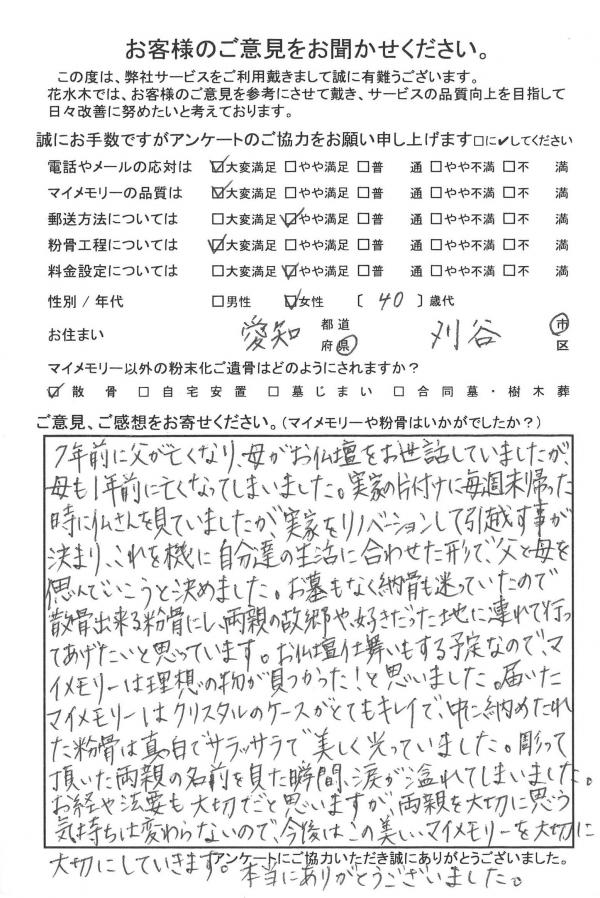 お客様のご意見をお聞かせください。
この度は、弊社サービスをご利用戴きまして誠に有難うございます。
花水木では、お客様のご意見を参考にさせて戴き、サービスの品質向上を目指して
日々改善に努めたいと考えております。
誠にお手数ですがアンケートのご協力をお願い申し上げます□に✔してください
電話やメールの応対は ☑大変満足 □やや満足 □普 通 □やや不満 □不 満
マイメモリーの品質は ☑大変満足 □やや満足 □普 通 □やや不満 □不 満
郵送方法については □大変満足 ☑やや満足 □普 通 □やや不満 □不 満
粉骨工程については ☑大変満足 □やや満足 □普 通 □やや不満 □不 満
料金設定については □大変満足 ☑やや満足 □普 通 □やや不満 □不 満
性別 / 年代 □男性 ☑女性 〔 40 〕歳代
お住まい 愛知 都道府県 刈谷 市区
マイメモリー以外の粉末化ご遺骨はどのようにされますか?
☑ 散骨 □ 自宅安置 □ 墓じまい □ 合同墓・樹木葬
ご意見、ご感想をお寄せください。(マイメモリーや粉骨はいかがでしたか?)
7年前に父が亡くなり、母がお仏壇をお世話していましたが、
母も1年前に亡くなってしまいました。実家の片付けに毎週末帰った
時に仏さんを見ていましたが、実家をリノベーションして引越す事が
決まり、これを機に自分達の生活に合わせた形で、父と母を
偲んでいこうと決めました。お墓もなく納骨も迷っていたので
散骨出来る粉骨にし、両親の故郷や、好きだった地に連れて行っ
てあげたいと思っています。お仏壇仕舞いもする予定なので、マ
イメモリーは理想の物が見つかった!と思いました。届いた
マイメモリーはクリスタルのケースがとてもキレイで、中に納めたれ
た粉骨は真っ白でサラッサラで美しく光っていました。彫って
頂いた両親の名前を見た瞬間、涙が溢れてしまいました。
お経や法要も大切でだと思いますが、両親を大切に思う
気持ちは変わらないので、今後はこの美しいマイメモリーを大切に
大切にしていきます。
アンケートにご協力いただき誠にありがとうございました。
本当にありがとうございました。